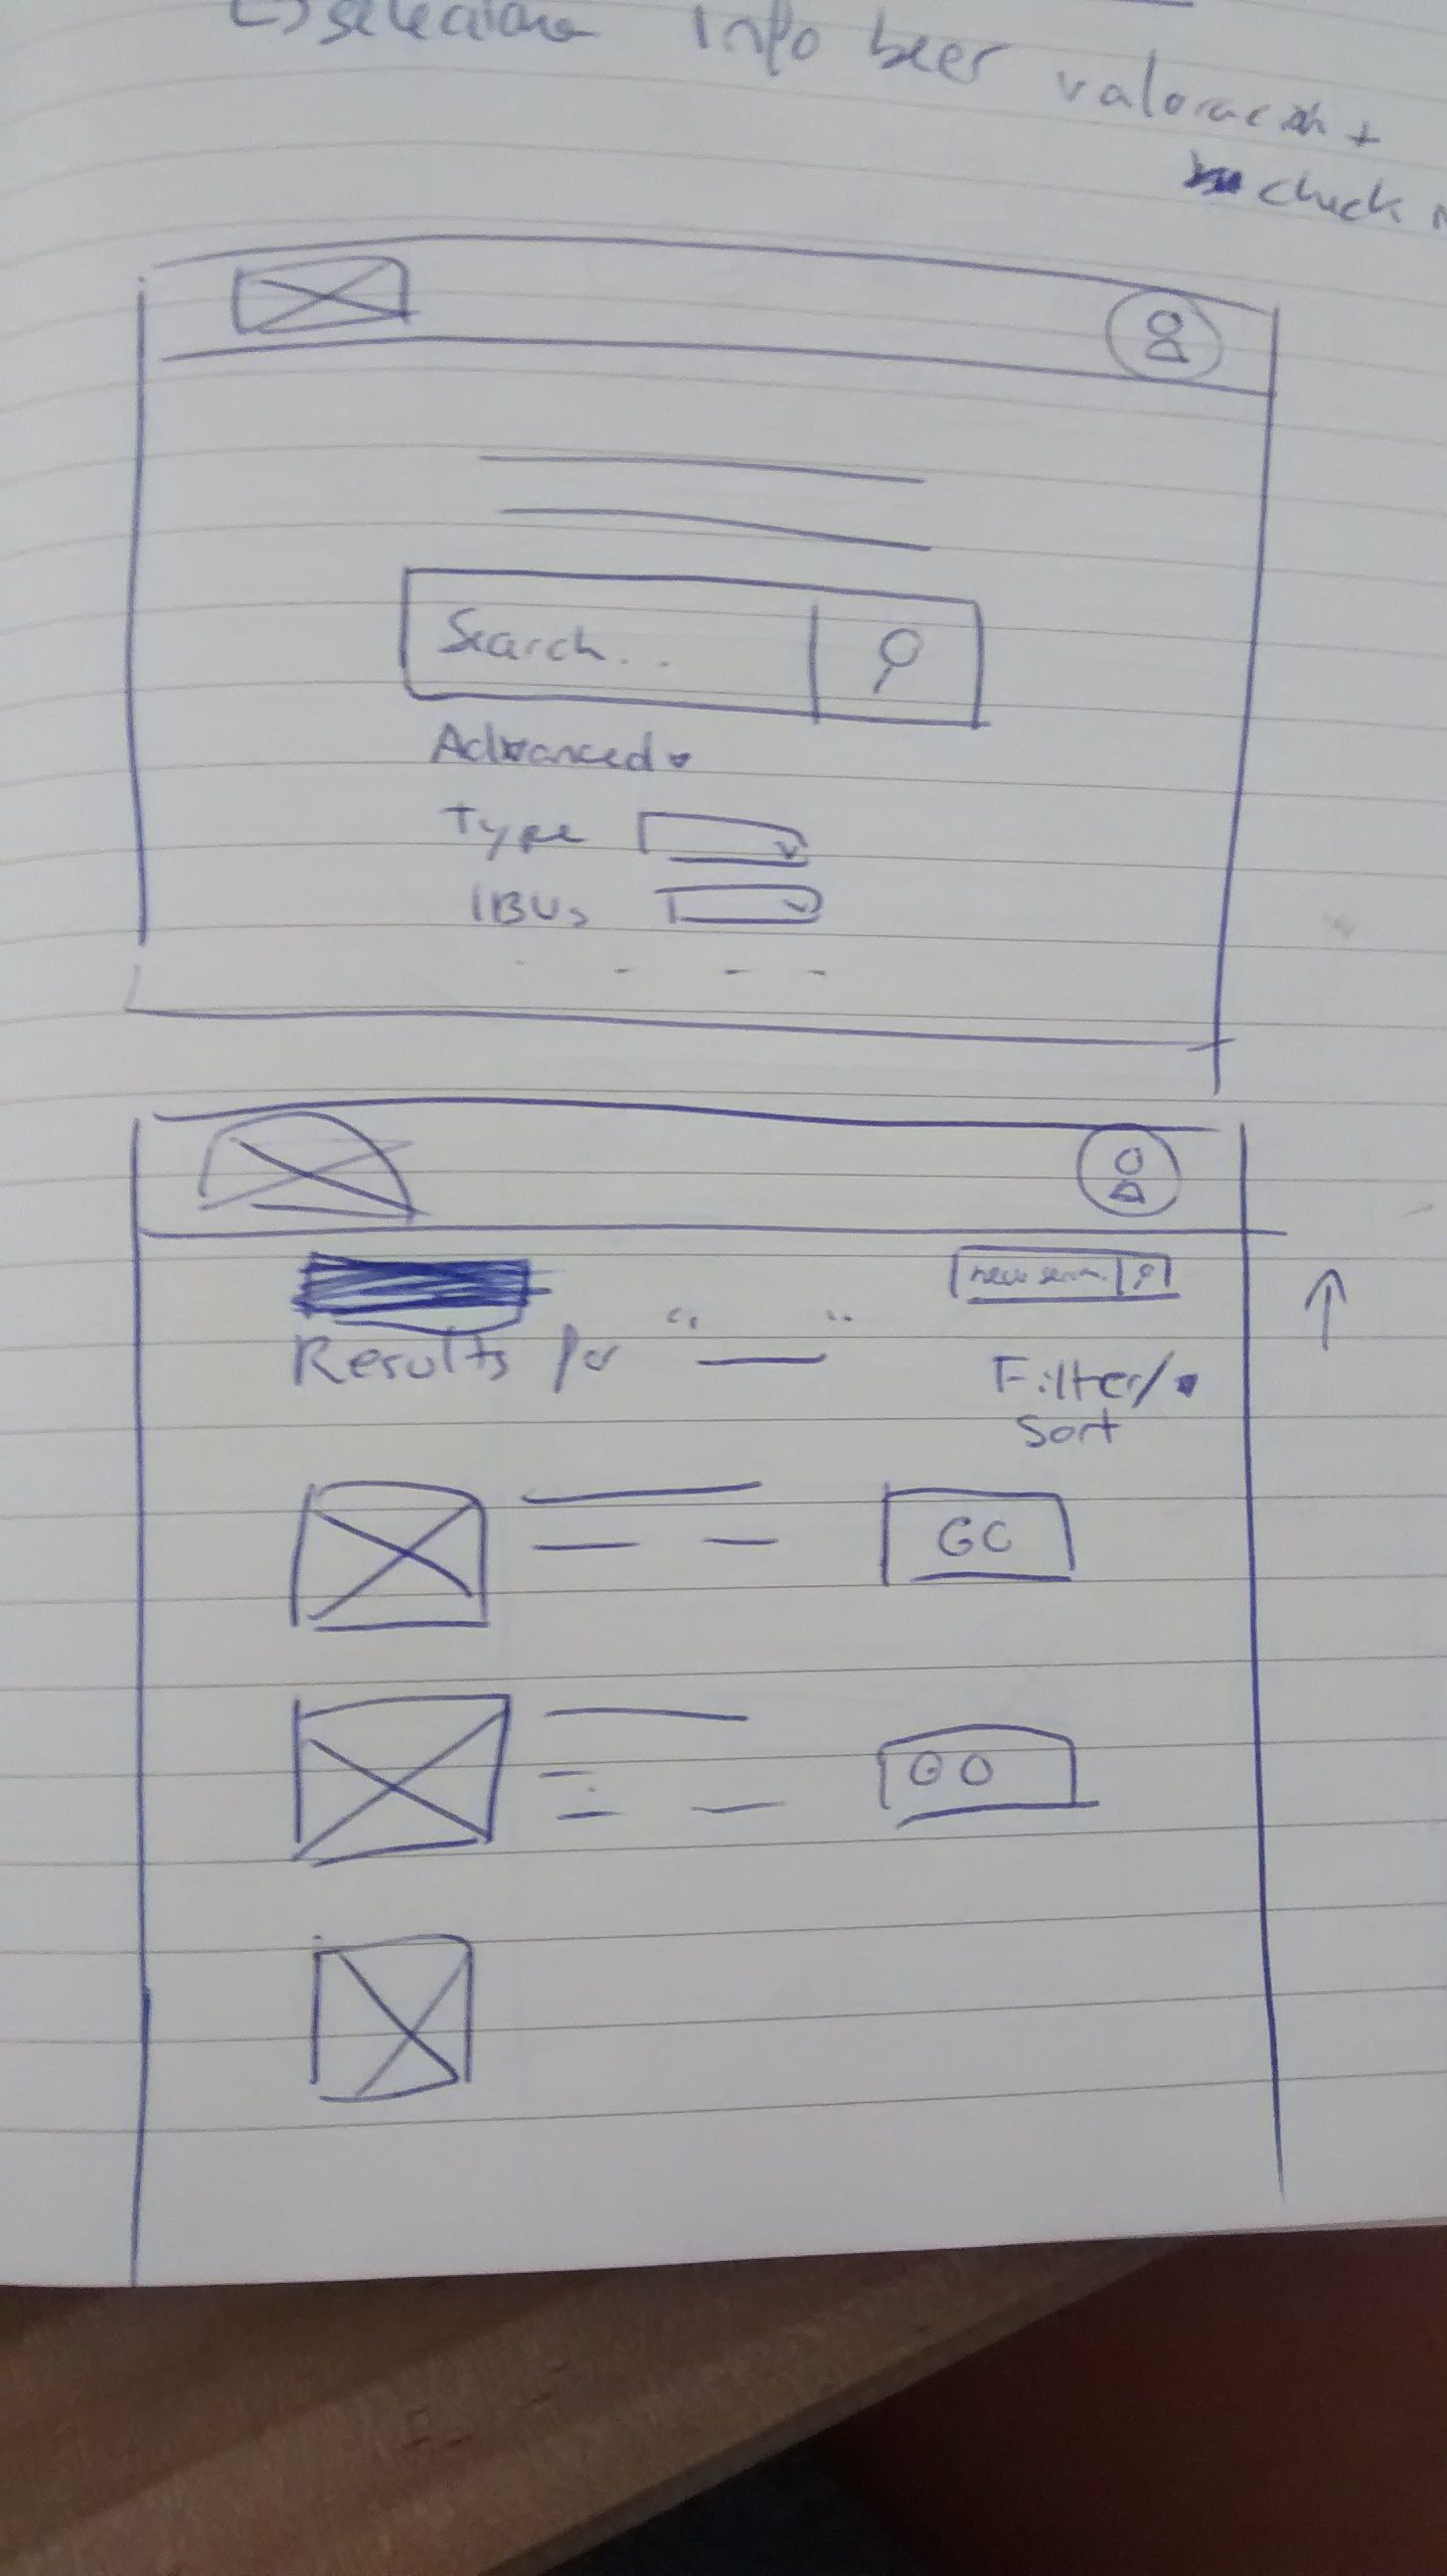 selecciona Info beer valoración +
check
Search...
Advanced
Type
IBUs
new sear..
Results for "___"
Filter/
Sort
GO
GO